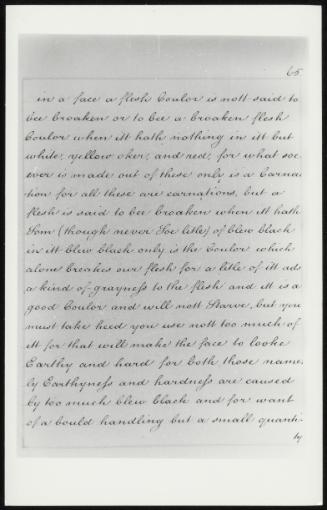 65
in a face a flesh Coulor is nott said to
bee broaken or to bee a broaken flesh
Coulor when itt hath nothing in itt but
white, yellow oker, and red, for what soe
ever is made out of these only is a Carnea
tion for all these are carnations, but a
flesh is said to bee broaken when itt hath
Som (though never Soe litle) of blew black
in itt blew black only is the Coulor which
alone breakes our flesh for a litle of itt ads
a kind of grayness to the flesh and itt is a
good Coulor and will nott Starve, but you
must take heed you use nott too much of
itt for that will make the face to looke
Earthy and hard for both those name
ly Earthyness and hardness are caused
by too much blew black and for want
of a bould handling but a small quanti
ty